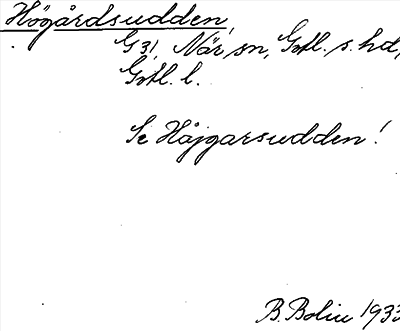 Högårdsudden,
G 31 När sn, Gotl. s. hd,
Gotl. l.
Se Håjgarsudden!
B. Bolin 1933